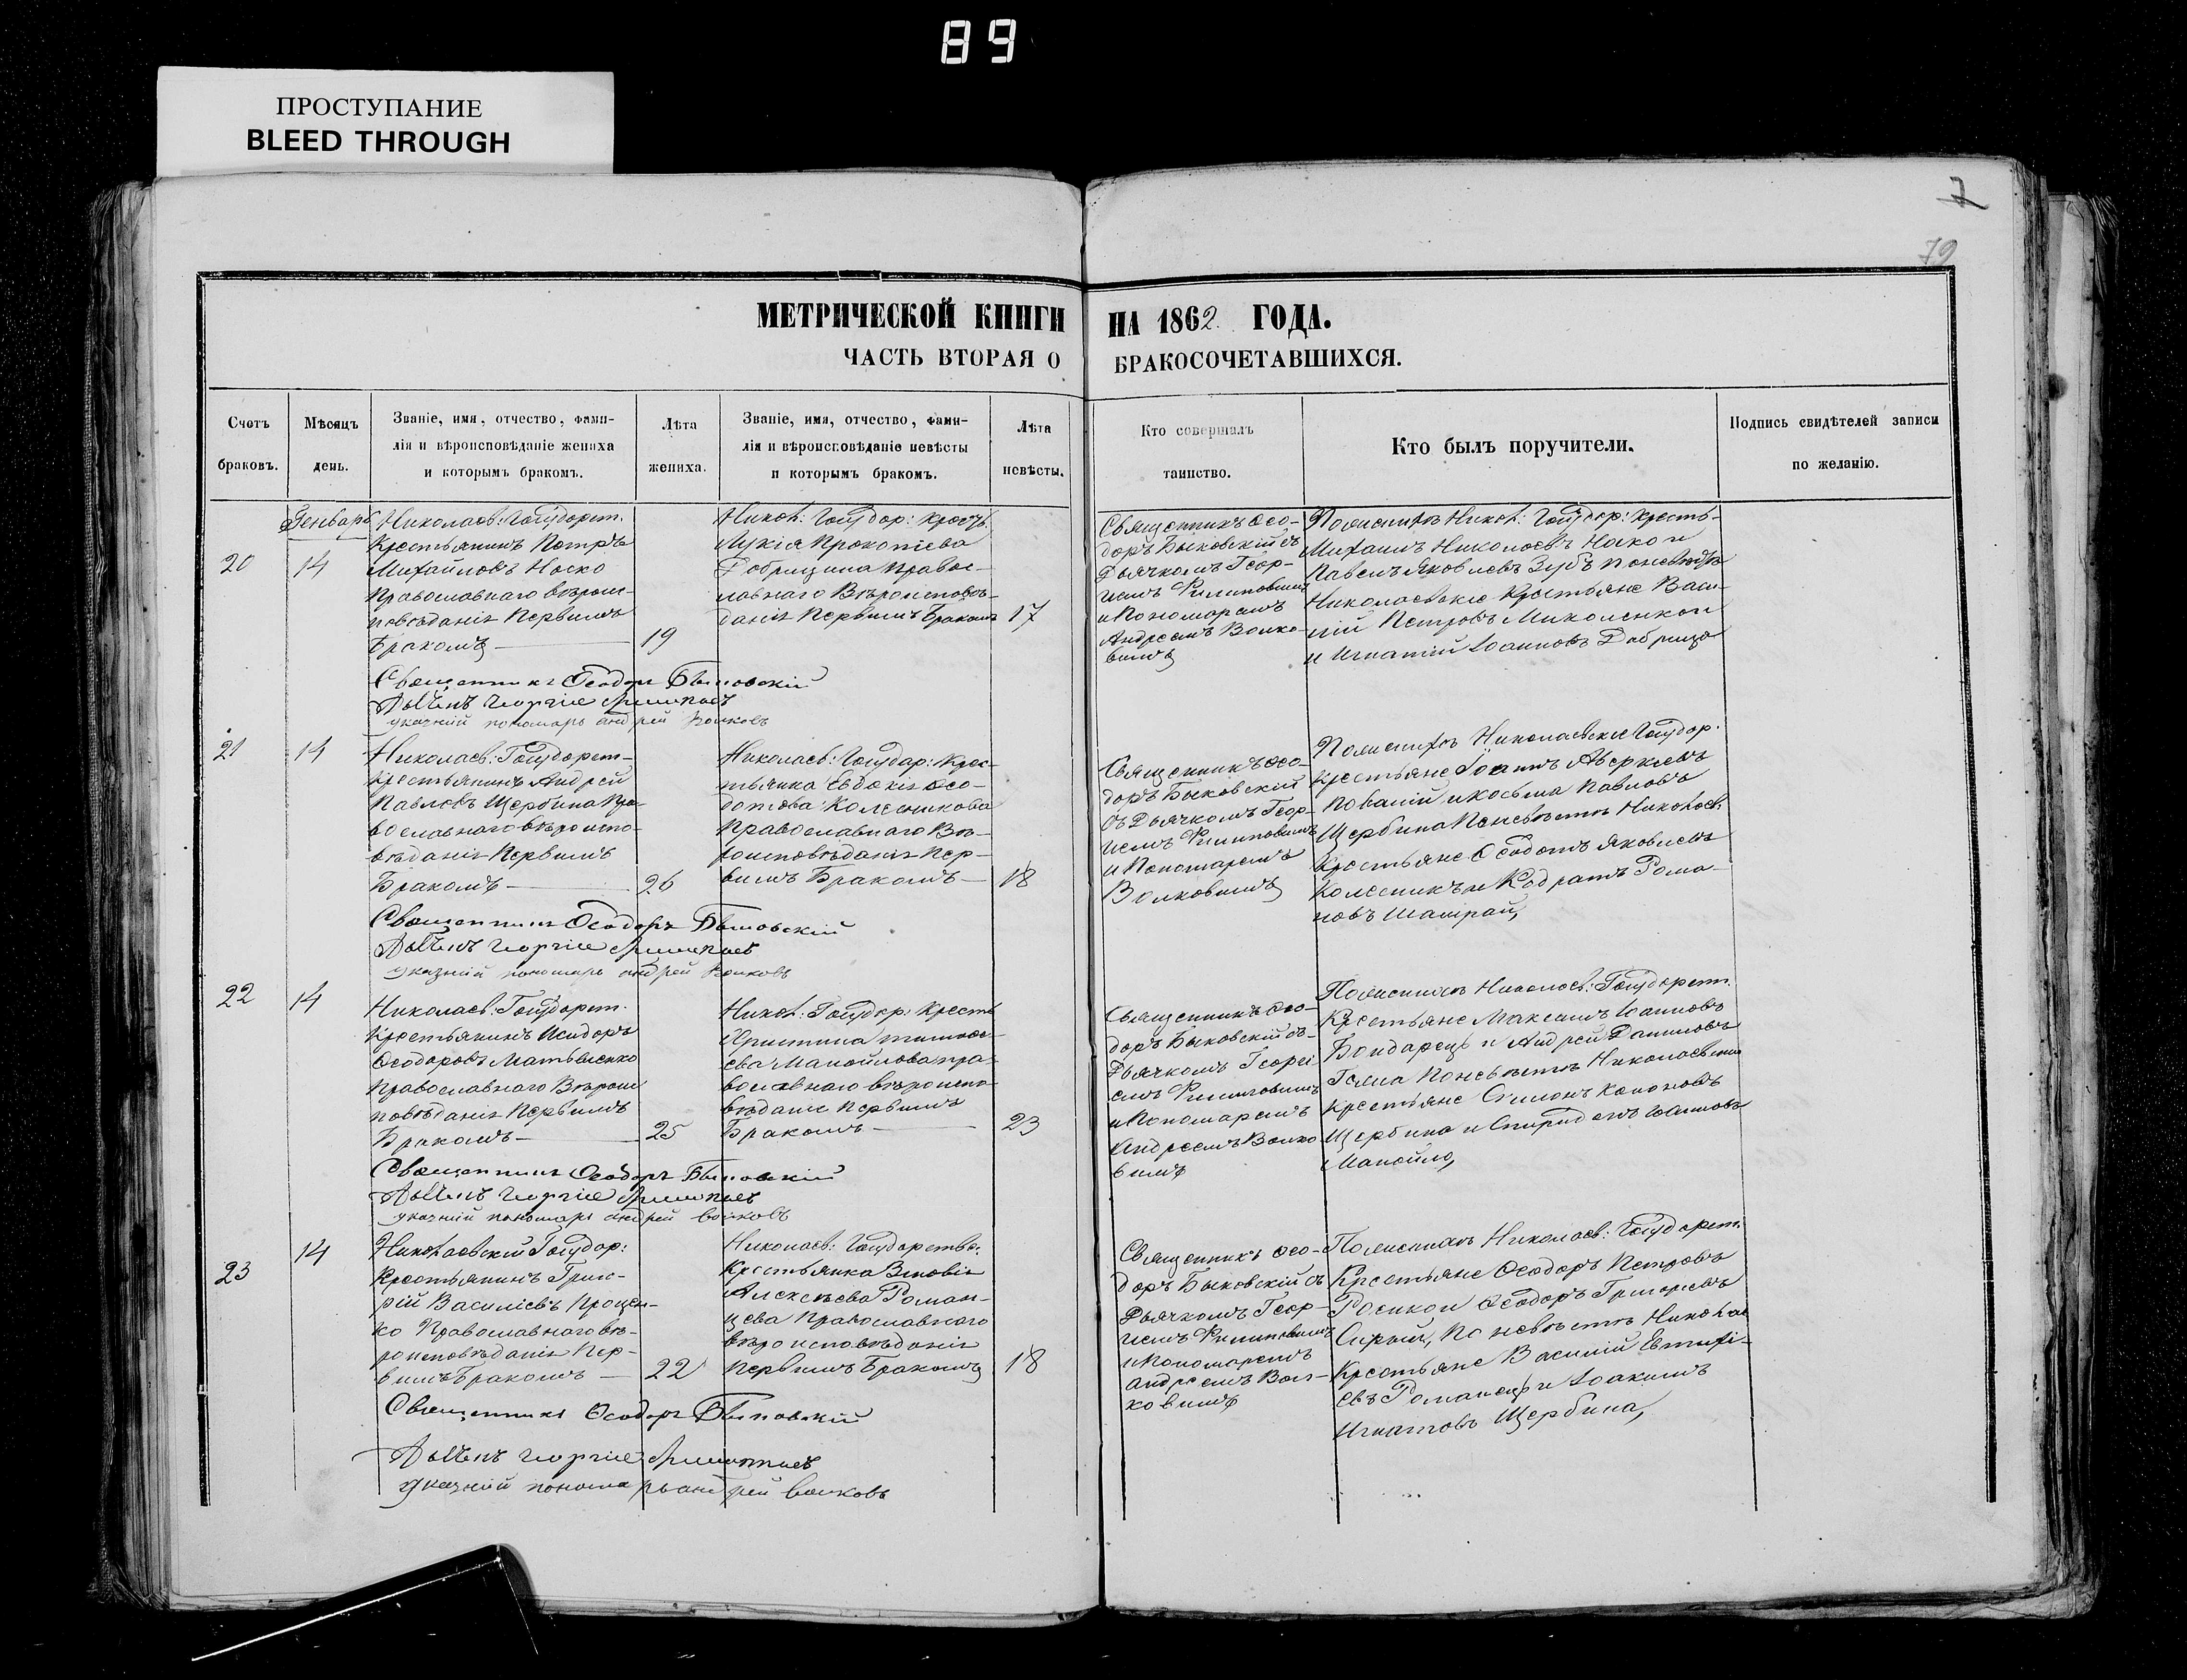 89
ПРОСТУПАНИЕ
BLEED THROUGH
7
79
МЕТРИЧЕСКОЙ КНИГИ НА 1862 ГОДА.
ЧАСТЬ ВТОРАЯ О БРАКОСОЧЕТАВШИХСЯ.
Счетъ браковъ.
Мѣсяцъ день.
Званіе, имя, отчество, фами-
лія и вѣроисповѣданіе жениха
и которымъ бракомъ.
Лѣта жениха.
Званіе, имя, отчество, фами-
лія и вѣроисповѣданіе невѣсты
и которымъ бракомъ.
Лѣта невѣсты.
Кто совершалъ
таинство.
Кто былъ поручители.
Подпись свидѣтелей записи
по желанію.
Генварь
20
14
Николаев: Государст.
Крестьянинъ Петръ
Михайловъ Носко
Православнаго вѣроис-
повѣданія Первымъ
Бракомъ
19
Никол: Государ: Крест:
Лукія Прокопіева
Добрицина Правос-
лавнаго Вѣроисповѣ-
данія Первымъ Бракомъ
17
Священникъ Ѳео-
доръ Быковскій съ
Дьячкомъ Геор-
гіемъ Филиповымъ
и Пономаремъ
Андреемъ Волко-
вымъ
По женихѣ Никол: Государ: Кресть-
Михаилъ Николаевъ Носко и
Павелъ Яковлевъ Зубъ по невѣстѣ
Николаевскіе Крестьяне Васи-
лій Петровъ Миколенко и
и Игнатій Іоанновъ Добрица
Священникъ Ѳеодоръ Быковскій
Дьячекъ Георгій Филиповъ
указный пономарь андрей Волковъ
21
14
Николаев: Государст-
Крестьянинъ Андрей
Павловъ Щербина Пра-
вославнаго вѣроиспо-
вѣданія Первымъ
Бракомъ
26
Николаев: Государ: Крес-
тьянка Евдокія
Колесникова
Православнаго Вѣ-
роисповѣданія Пер-
вымъ Бракомъ
18
Священникъ Ѳео-
доръ Быковскій
съ Дьячкомъ Геор-
гіемъ Филиповымъ
и Пономаремъ
Волковымъ
По женихѣ Николаевскіе Государ.
Крестьяне Іоаннъ Аверкіевъ
и Косьма Павловъ
Щербина По невѣстѣ Николаев:
Крестьяне Ѳеодотъ Яковлевъ
Колесникъ и Кодратъ Рома-
новъ Шамрай,
Священникъ Ѳеодоръ Быковскій
Дьячекъ Георгій Филиповъ
указный пономарь андрей Волковъ
22
14
Николаев: Государст.
Крестьянинъ Исидоръ
Ѳеодоровъ Матвіенко
Православнаго Вѣроис-
повѣданія Первымъ
Бракомъ
25
Никол: Государ: Кресть
Христина Тимоѳе-
ева Манойлова пра-
вославнаго вѣроиспо-
вѣданія Первымъ
Бракомъ
23
Священникъ Ѳео-
доръ Быковскій съ
Дьячкомъ Георгі-
емъ Филиповымъ
и Пономаремъ
Андреемъ Волко-
вымъ
По женихѣ Николаев: Государст.
Крестьяне Максимъ Іоанновъ
Бондарець и Андрей Даниловъ
По невѣстѣ Николаевскіе
Крестьяне Симонъ Кононовъ
Щербина и Спиридонъ Іоанновъ
Манойло,
Священникъ Ѳеодоръ Быковскій
Дьячекъ Георгій Филиповъ
указный пономарь андрей волковъ
23
14
Николаевскій Государ:
Крестьянинъ Григо-
рій Василіевъ Процен-
ко Православнаго вѣ-
роисповѣданія Пер-
вымъ Бракомъ
22
Николаев: Государств:
Крестьянка Зиновія
Алексѣева Роман-
цева Православнаго
вѣроисповѣданія
Первымъ Бракомъ
18
Священникъ Ѳео-
доръ Быковскій съ
Дьячкомъ Геор-
гіемъ Филиповымъ
и Пономаремъ
андреемъ Вол-
ковымъ
По женихѣ Николаев: Государст.
Крестьяне Ѳеодоръ Петровъ
и Ѳеодоръ Григорьевъ
Сирый, По невѣстѣ Николаев
Крестьяне Василій Евтихі-
евъ Романецъ и Іоакимъ
Игнатовъ Щербина,
Священникъ Ѳеодоръ Быковскій
Дьячекъ Георгій Филиповъ
указный пономарь андрей волковъ